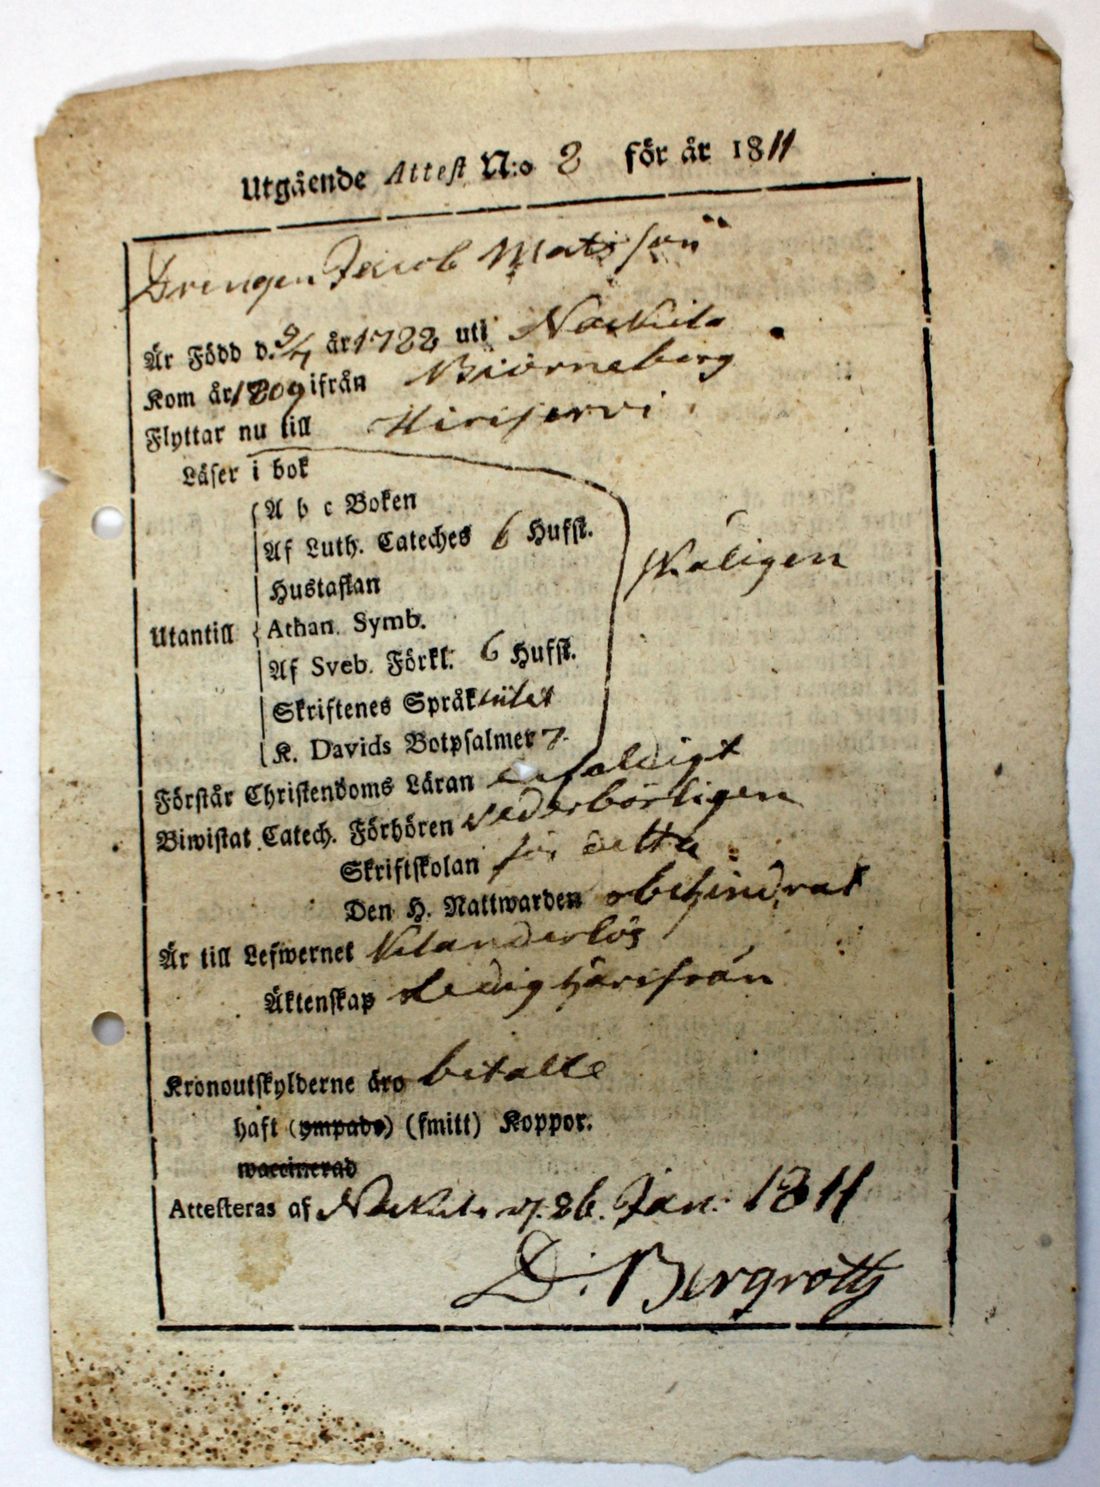 Utgående Attest N:o 2 för år 1811
Drengen Jacob Matsson
Är Född d. 9/7 år 1788 uti Nackila
Kom år 1809 ifrån Biörneberg
Flyttar nu till Hirisjervi
Läser i bok
A b c Boken
Af Luth. Cateches 6 Hufst.
Hustaflan
skäligen
Utantill Athan. Symb.
Af Sveb. Förkl. 6 Hufst.
Skriftenes Språk intet
K. Davids Botpsalmer 7
Förstår Christendoms Läran enfaldigt
Biwistat Catech. Förhören vederbörligen
Skriftskolan för detta
Den H. Nattwarden obehindrat
Är till Lefwernet Klanderlös
Äktenskap Ledig härifrån
Kronoutskylderne äro betalte
haft (ympade) (smitt) Koppor.
waccinerad
Attesteras af Nackila d. 26. Jan: 1811
D. Bergroth